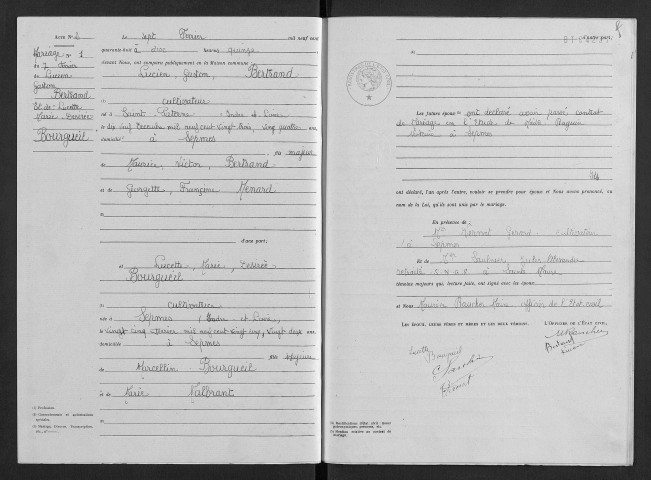 Acte No 2
Mariage No 1
du 7 Février
de Lucien
Gaston
Bertrand
Et de Lucette
Marie Désirée
Bourgueil
Le sept Février mil neuf cent
quarante huit à dix heures quinze
devant Nous, ont comparu publiquement en la Maison commune :
Lucien, Gaston, Bertrand
(1) cultivateur
né à Saint Paterne Indre et Loire
le dix neuf mil neuf cent vingt trois, vingt quatre ans
domicilié à Sepmes
fils majeur
de Maurice, Victor, Bertrand
et de Georgette, Françoise Menard
d'une part;
et Lucette, Marie, Désirée
Bourgueil
(1) cultivatrice
née à Sepmes (Indre et Loire,
le vingt cinq mil neuf cent vingt cinq, vingt deux ans
domiciliée à Sepmes
fille majeure
de Marcellin Bourgueil
et de Marie Malbrant
(1) Profession.
d'autre part;
Les futurs époux ont déclaré avoir passé contrat
de Mariage en l'Etude de Maître
Notaire à Sepmes
ont déclaré, l'un après l'autre, vouloir se prendre pour époux et Nous avons prononcé, au
nom de la Loi, qu'ils sont unis par le mariage.
En présence de
cultivateur
à Sepmes
Et de
retraité S.N.C.F. à Sainte Maure
témoins majeurs qui, lecture faite, ont signé avec les époux
et Nous Maurice Maire officier de l'Etat civil
Les époux, leurs pères et mères et les deux témoins, L'Officier de l'État civil,
Lucette
Bourgueil
Bertrand
Lucien